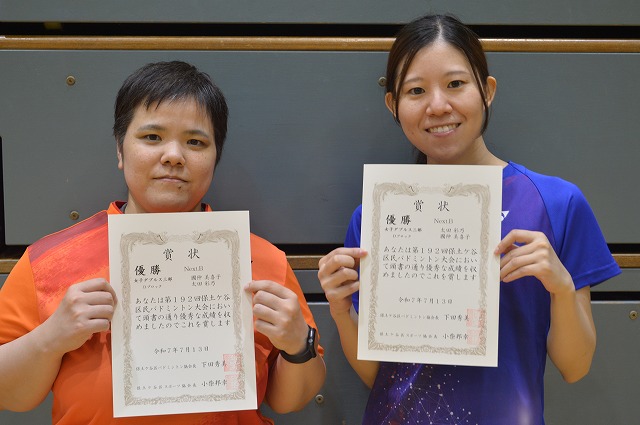 賞状
優勝 NextB
女子ダブルス三部 國仲 美喜子
Dブロック 太田 彩乃
あなたは第192回保土ケ谷
区民バドミントン大会におい
て頭書の通り優秀な成績を収
めましたのでこれを賞します
令和7年7月13日
保土ケ谷区バドミントン協会長 下田秀美
保土ケ谷区スポーツ協会長 小柴邦幸
賞状
優勝 NextB
女子ダブルス三部 太田 彩乃
Dブロック 國仲 美喜子
あなたは第192回保土ケ谷
区民バドミントン大会におい
て頭書の通り優秀な成績を収
めましたのでこれを賞します
令和7年7月13日
保土ケ谷区バドミントン協会長 下田秀美
保土ケ谷区スポーツ協会長 小柴邦幸